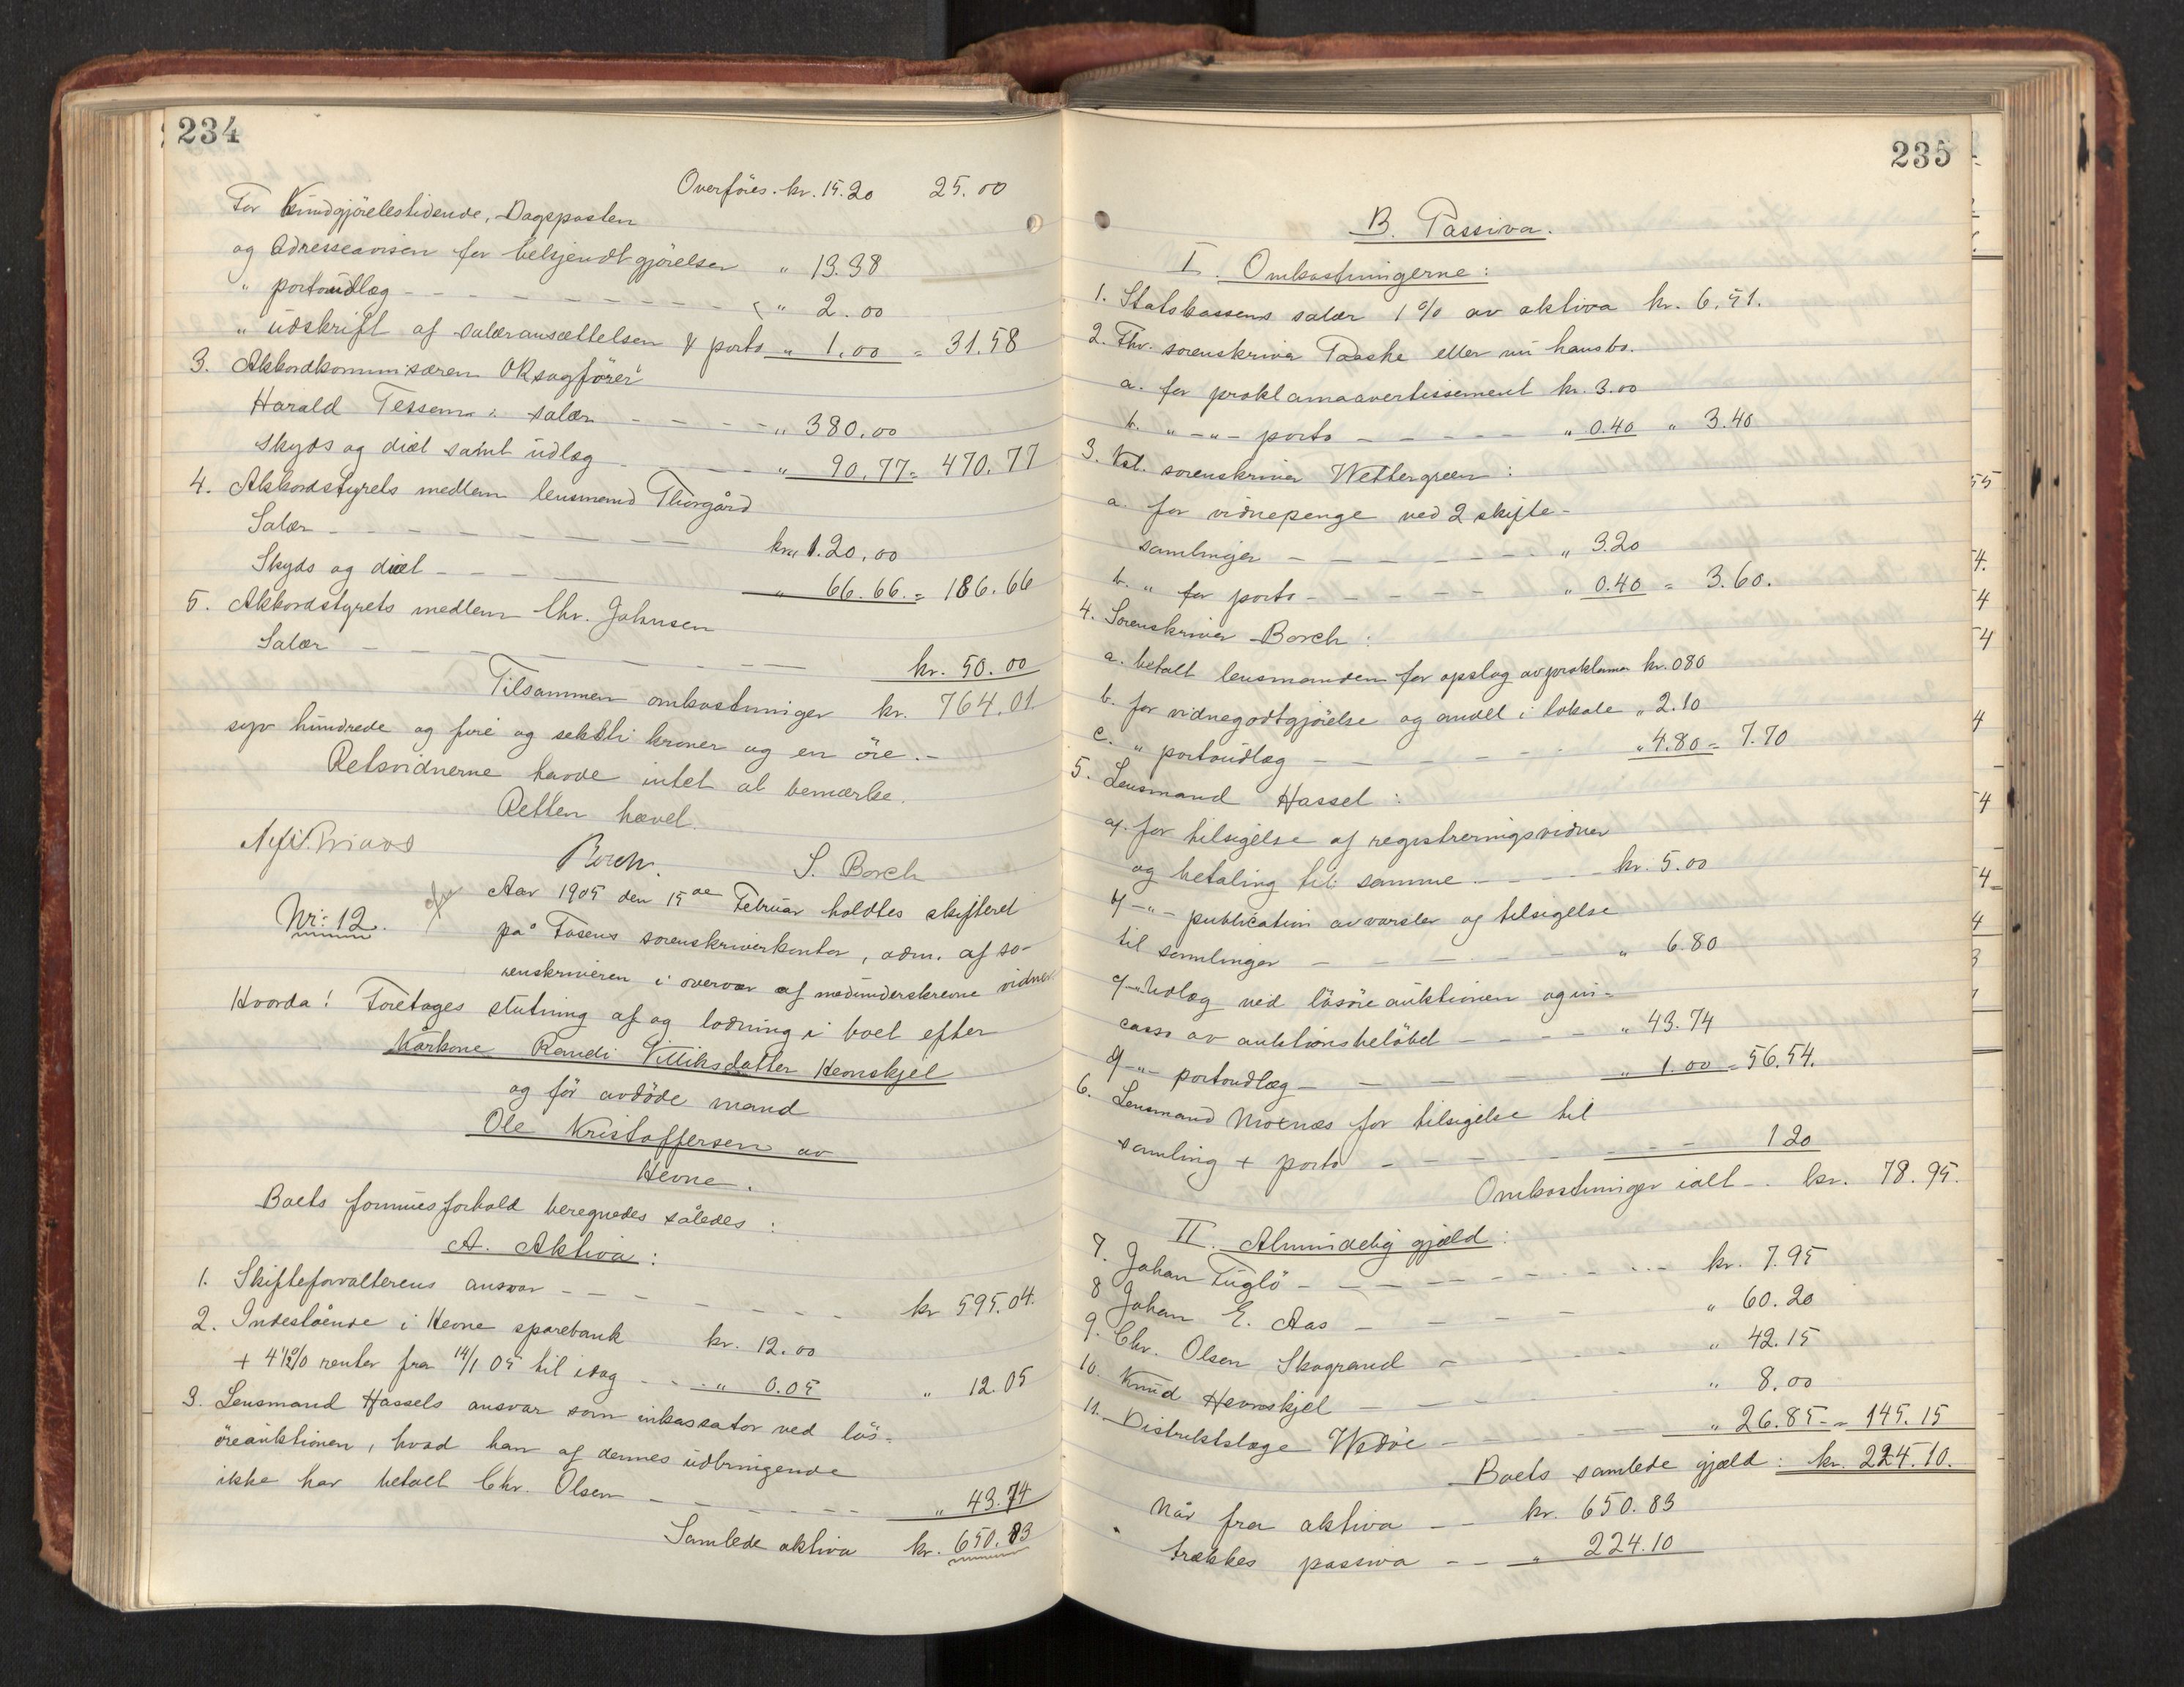 234
Overføres. kr. 15.20 25.00
For Kundgjørelestidende, Dagsposten
og Adresseavisen for bekjendtgjørelser " 13.38
" portoudlæg - - - " 2.00
" udskrift af salæransættelsen & porto " 1.00 = 31.58
3. Akkordkommisæren ORsagfører
Harald Tessem i salær - - - " 380.00
Skyds og diæt samt udlæg - - " 90.77 = 470.77
4. Akkordstyrets medlem lensmand Thorgård
Salær - - - kr. 120.00
Skyds og diæt - - - " 66.66 = 186.66
5. Akkordstyrets medlem Chr. Johnsen
Salær - - - kr. 50.00
Tilsammen omkostninger kr. 764.01
syv hundrede og fire og seksti kroner og en øre. -
Retsvidnerne havde intet at bemærke.
Retten hævet.
Borch. S. Borch
Nr: 12. Aar 1905 den 15de Februar holdtes skifteret
på Fosens sorenskriverkontor, adm. af so-
renskriveren i overvær af medunderskrevne vidner.
Hvorda! Foretoges slutning af og lodning i boet efter
Kårkone Randi Villiksdatter Hevnskjel
og før avdøde mand
Ole Kristoffersen av
Hevne.
Boets formuesforhold beregnedes således:
A. Aktiva:
1. Skifteforvalterens ansvar - - - kr 595.04.
2. Indestående i Hevne sparebank kr. 12.00
+ 4½% renter fra 14/1 05 til idag - - " 0.05 " 12.05
3. Lensmand Hassels ansvar som inkassator ved løs-
øreauktionen, hvad han af dennes udbringende
ikke har betalt Chr. Olsen - - - " 43.74
Samlede aktiva kr. 650.83
235
B. Passiva.
I. Omkostningerne:
1. Statskassens salær 1% av aktiva kr. 6.51.
2. Fhv. sorenskriver Paaske eller nu hans bo.
a. for proklamaavertissement kr. 3.00
b. " - " - porto - - - " 0.40 " 3.40
3. Kst. sorenskriver Wettergreen:
a. for vidnepenge ved 2 skifte-
samlinger - - - " 3.20
b. " for porto - - - " 0.40 = 3.60.
4. Sorenskriver Borch:
a. betalt lensmanden for opslag av proklama kr. 080
b. for vidnegodtgjørelse og andel i lokale " 2.10
c. " portoudlæg - - - " 4.80 = 7.70
5. Lensmand Hassel:
a/. for tilsigelse af registreringsvidner
og betaling til samme - - - kr. 5.00
b/ - " - publication av varsler og tilsigelse
til samlinger - - - " 6.80
c/ - " - Udlæg ved løsøreauktionen og in-
casso av auktionsbeløbet - - - " 43.74
d/ - " - portoudlæg - - - " 1.00 = 56.54.
6. Lensmand Moxnæs for tilsigelse til
samling + porto - - - 1 20
Omkostninger ialt - . kr. 78.95.
II. Almindelig gjæld:
7. Johan Fuglø - - - kr. 7.95
8 Johan E. Aas - - - " 60.20
9. Chr. Olsen Skagrand - - - " 42.15
10. Knud Hevnskjel - - - " 8.00
11. Distriktslæge Wedøe - - - " 26.85 = 145.15
Boets samlede gjæld: kr. 224.10.
Når fra aktiva - - kr. 650.83
trækkes passiva - - " 224.10